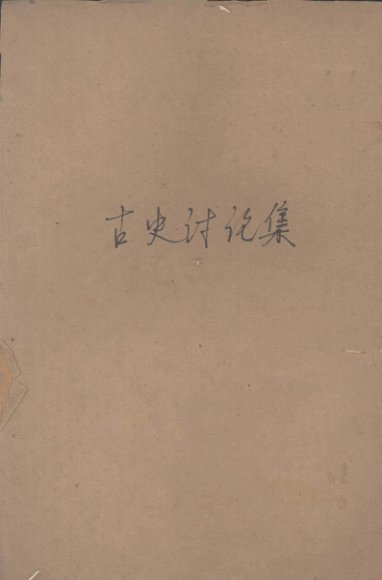 古史讨论集